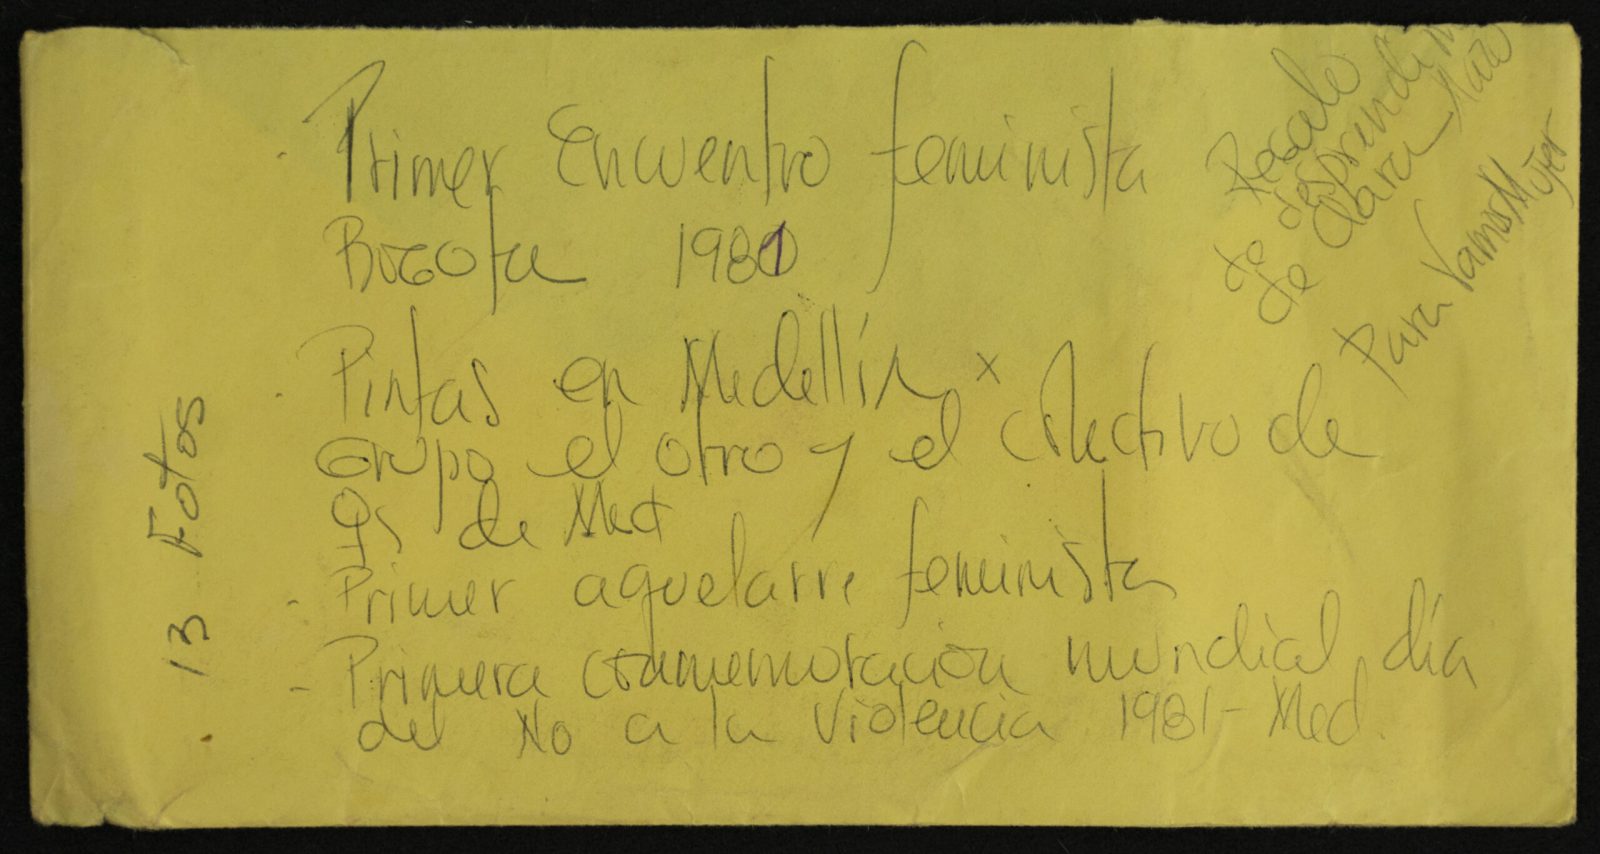 - Primer Encuentro feminista
Bogota 1981
- Pintas en Medellín x
Grupo el otro y el colectivo de
Qs de Med
- Primer aquelarre feminista
- Primera conmemoración mundial día
del No a la violencia 1981- Med.
13 Fotos
Regalo
de desprendi
de Clara Mazo
Para Vamos Mujer